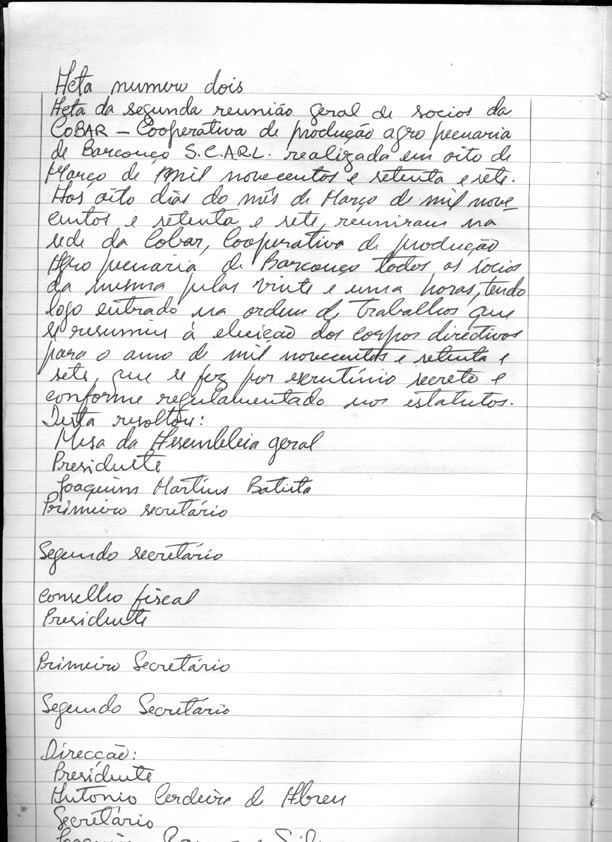 Acta numero dois
Acta da segunda reunião geral de socios da
CoBAR – Cooperativa de produção agro pecuaria
de Barcouço S.C.A.R.L. realizada em oito de
Março de mil novecentos e setenta e sete.
Aos oito dias do mês de Março de mil nove-
centos e setenta e sete, reuniram na
sede da Cobar, Cooperativa de produção
Agro pecuaria de Barcouço todos os socios
da mesma pelas vinte e uma horas, tendo
logo entrado na ordem de trabalhos que
se resumiu à eleição dos corpos directivos
para o ano de mil novecentos e setenta e
sete, que se fez por escrutínio secreto e
conforme regulamentado nos estatutos.
Desta resultou:
Mesa da Assembleia geral
Presidente
Joaquim Martins Batista
Primeiro secretário
Segundo secretário
Conselho fiscal
Presidente
Primeiro Secretário
Segundo Secretário
Direcção:
Presidente
Antonio Cerdeira de Abreu
Secretário
Joaquim